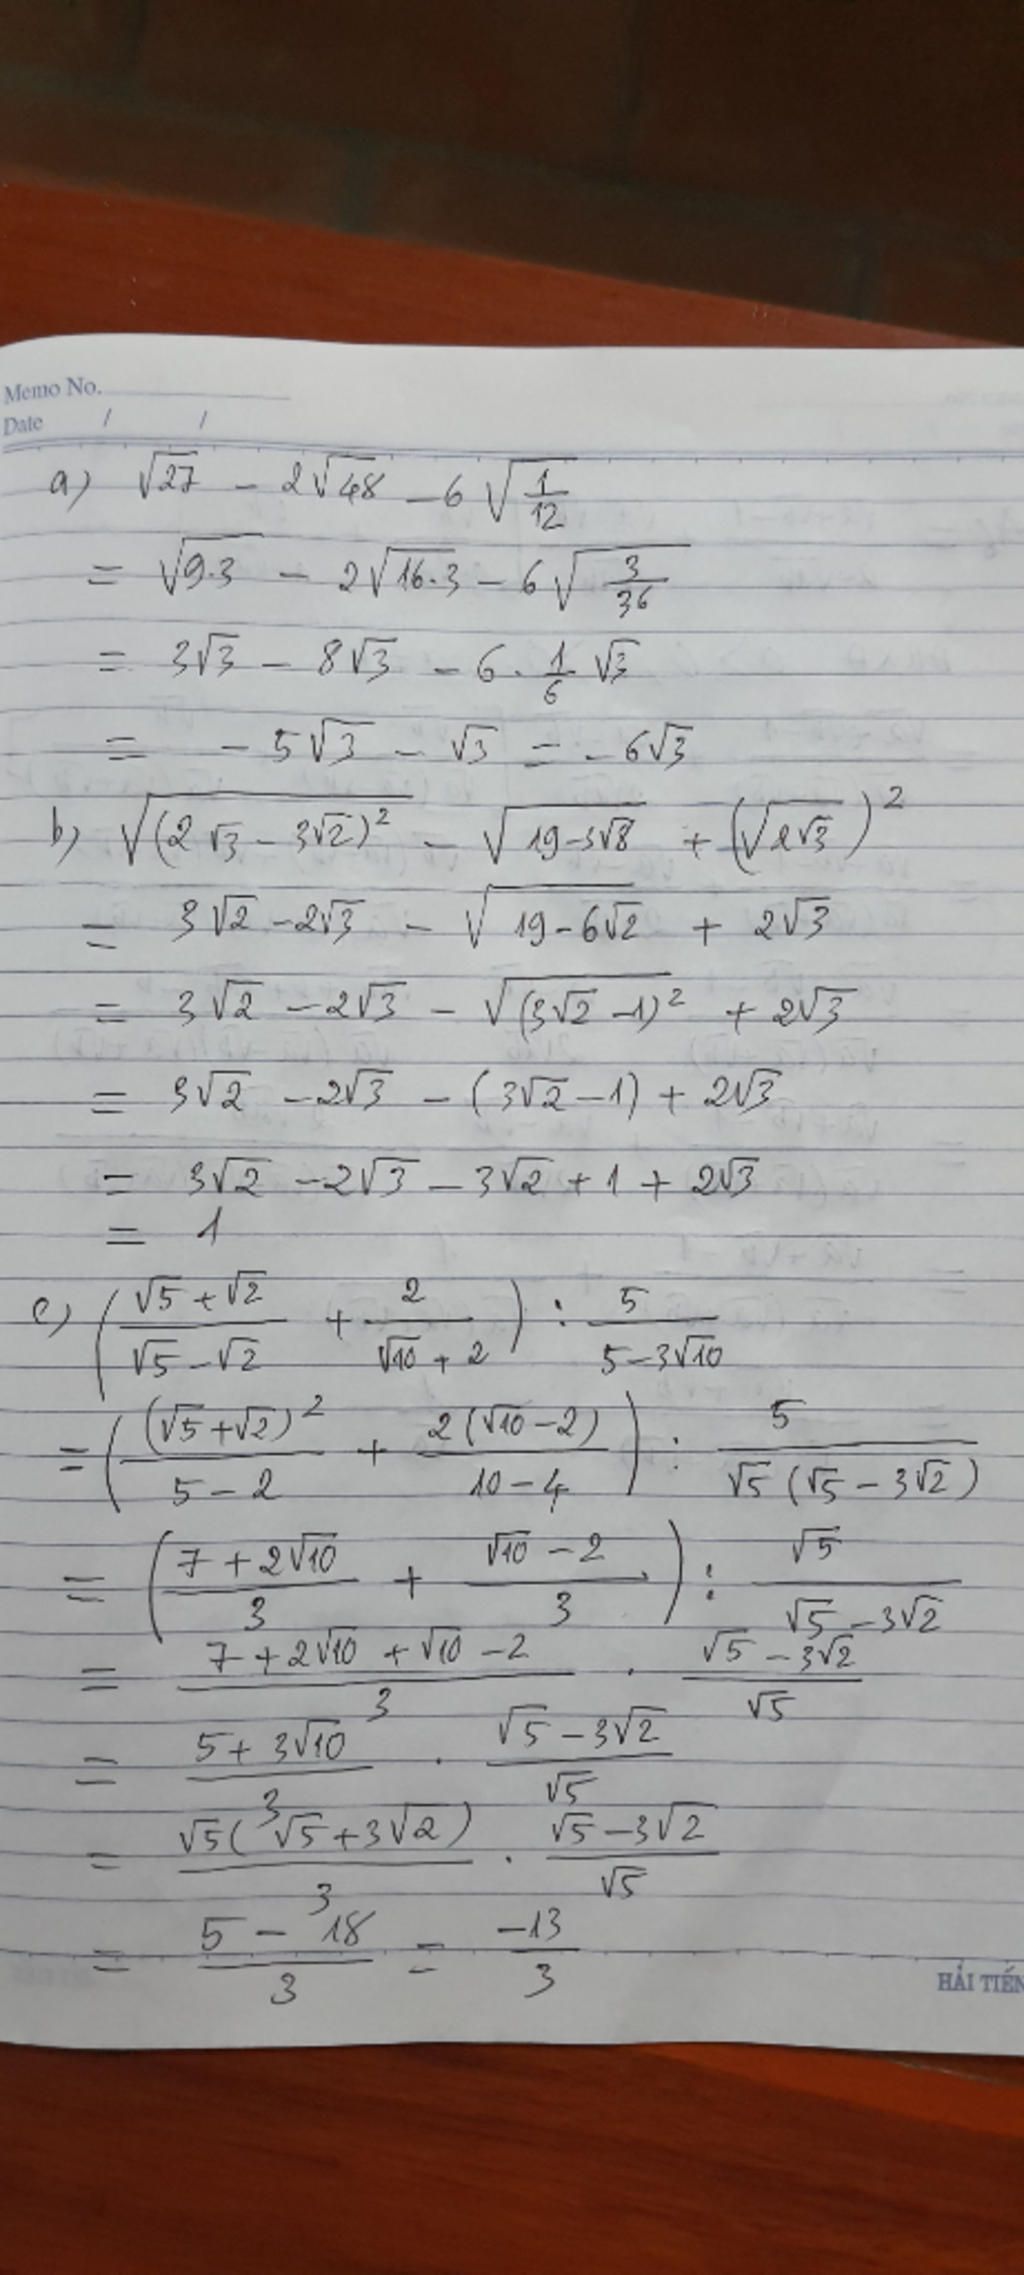 Memo No.
Date / /
a) √27 - 2√48 - 6√(1/12)
= √(9·3) - 2√(16·3) - 6√(3/36)
= 3√3 - 8√3 - 6·(1/6)√3
= -5√3 - √3 = -6√3
b) √((2√3 - 3√2)²) - √(19-3√8) + (√(2√3))²
= 3√2 - 2√3 - √(19-6√2) + 2√3
= 3√2 - 2√3 - √((3√2-1)²) + 2√3
= 3√2 - 2√3 - (3√2-1) + 2√3
= 3√2 - 2√3 - 3√2 + 1 + 2√3
= 1
c) ((√5+√2)/(√5-√2) + 2/(√10+2)) : 5/(5-3√10)
= ((√5+√2)²/(5-2) + 2(√10-2)/(10-4)) : 5/(√5(√5-3√2))
= ((7+2√10)/3 + (√10-2)/3) : √5/(√5-3√2)
= (7+2√10+√10-2)/3 · (√5-3√2)/√5
= (5+3√10)/3 · (√5-3√2)/√5
= √5(√5+3√2)/3 · (√5-3√2)/√5
= (5-18)/3 = -13/3
HẢI TIẾN